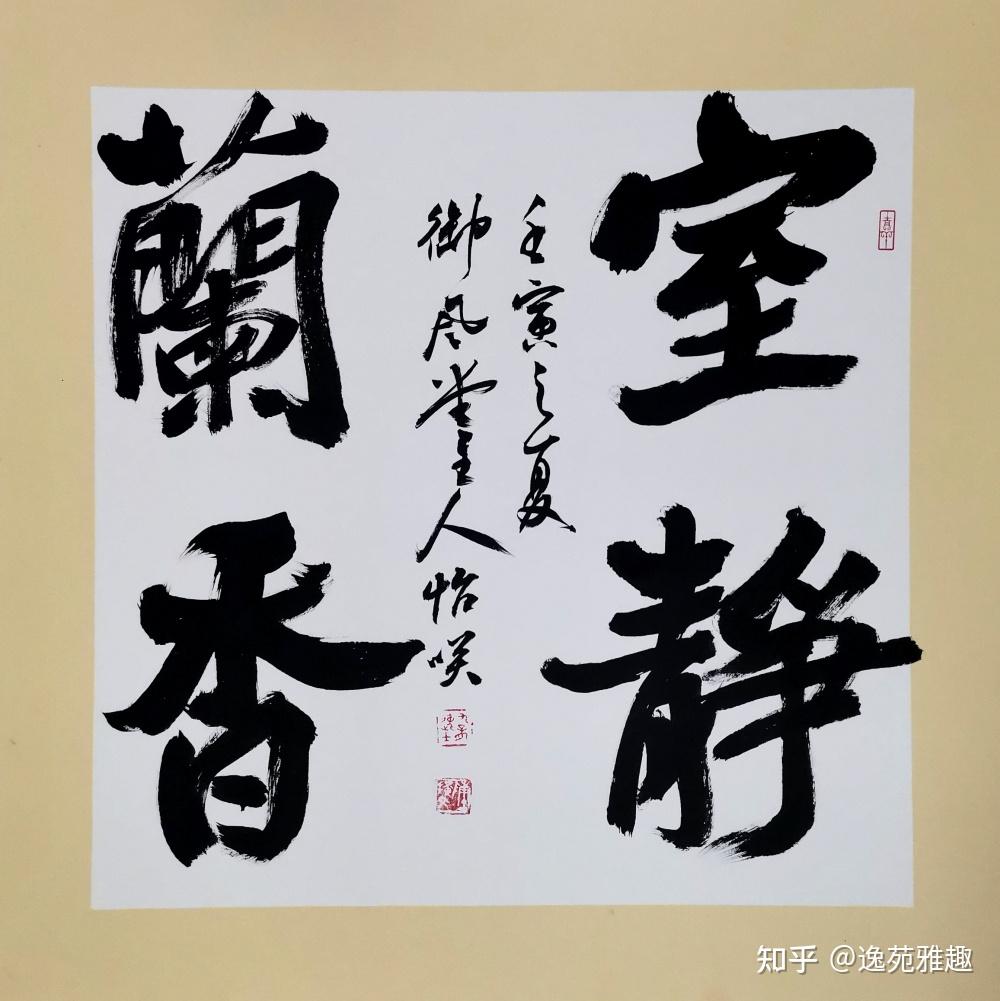 室靜
蘭香
壬寅之夏
御风堂主人怡咲
知乎 @逸苑雅趣